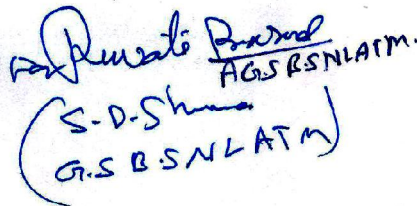 For Rewati Prasad
AGS BSNLATM.
(S-D-Sharma
G.S B.S NL ATM)